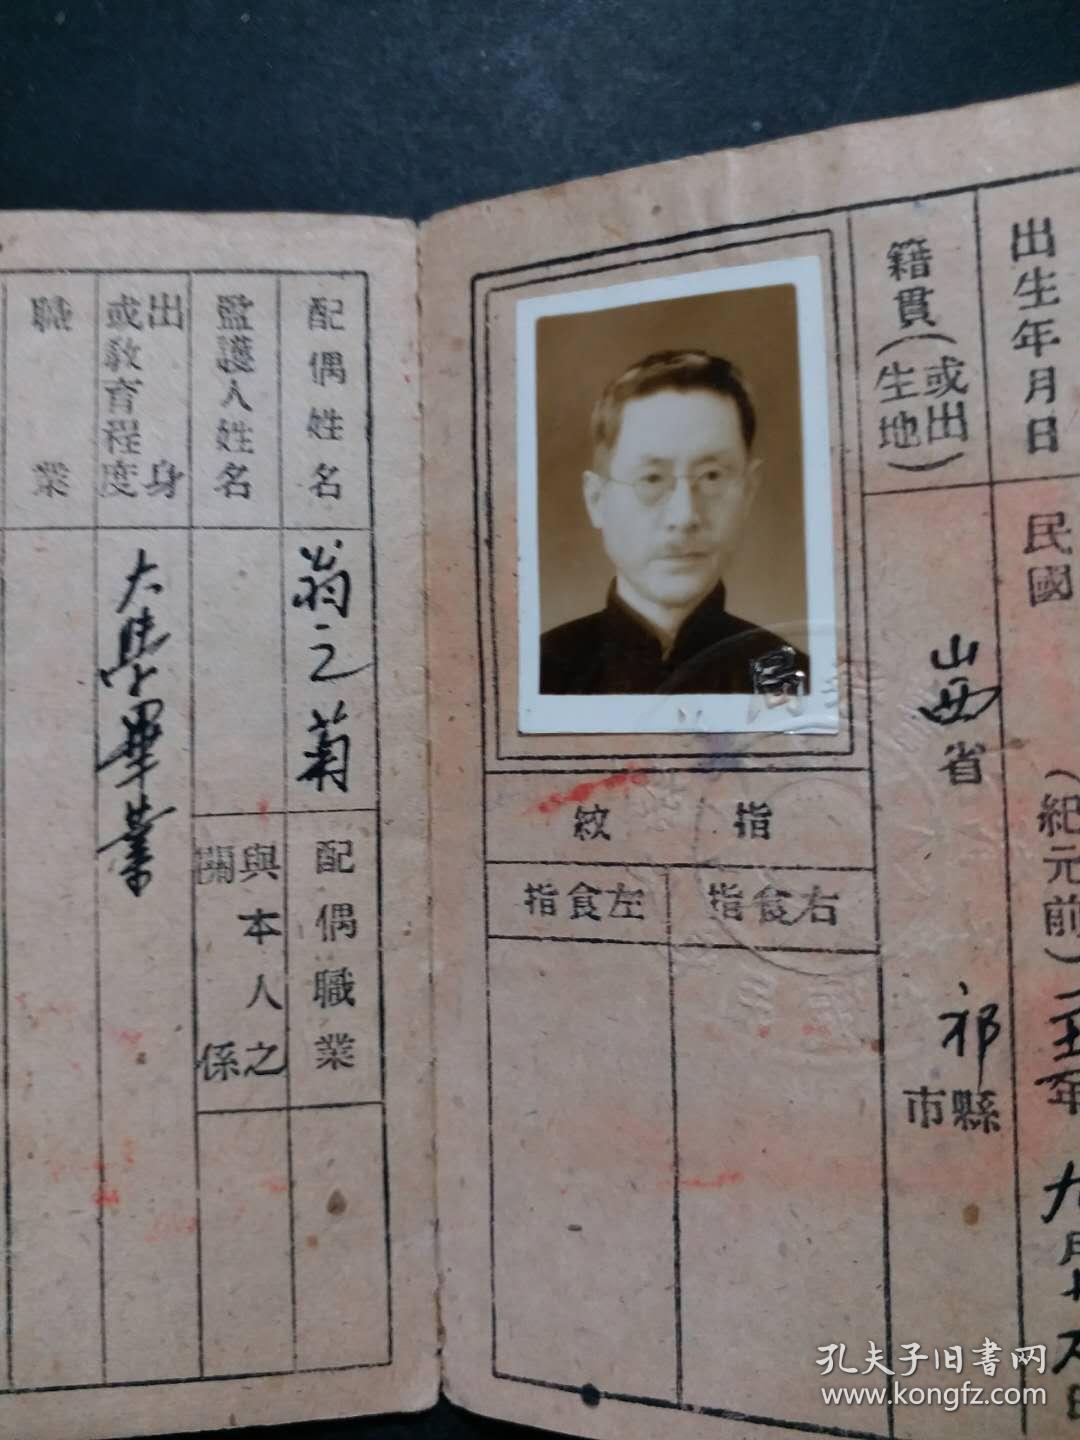 出生年月日
民國
(紀元前)二五年九月十五日
籍貫(或出生地)
山西省
祁
縣市
指紋
右食指
左食指
配偶姓名
翁之菊
配偶職業
監護人姓名
與本人之關係
出身或教育程度
大學畢業
職業
孔夫子旧書网
www.kongfz.com